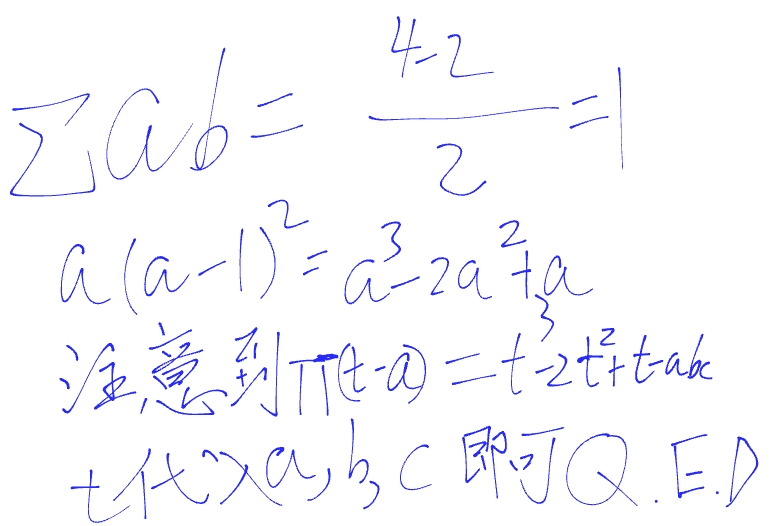 ∑ab = (4-2)/2 = 1
a(a-1)² = a³-2a²+a
注意到π(t-a) = t³-2t²+t-abc
t代入a,b,c 即可Q.E.D